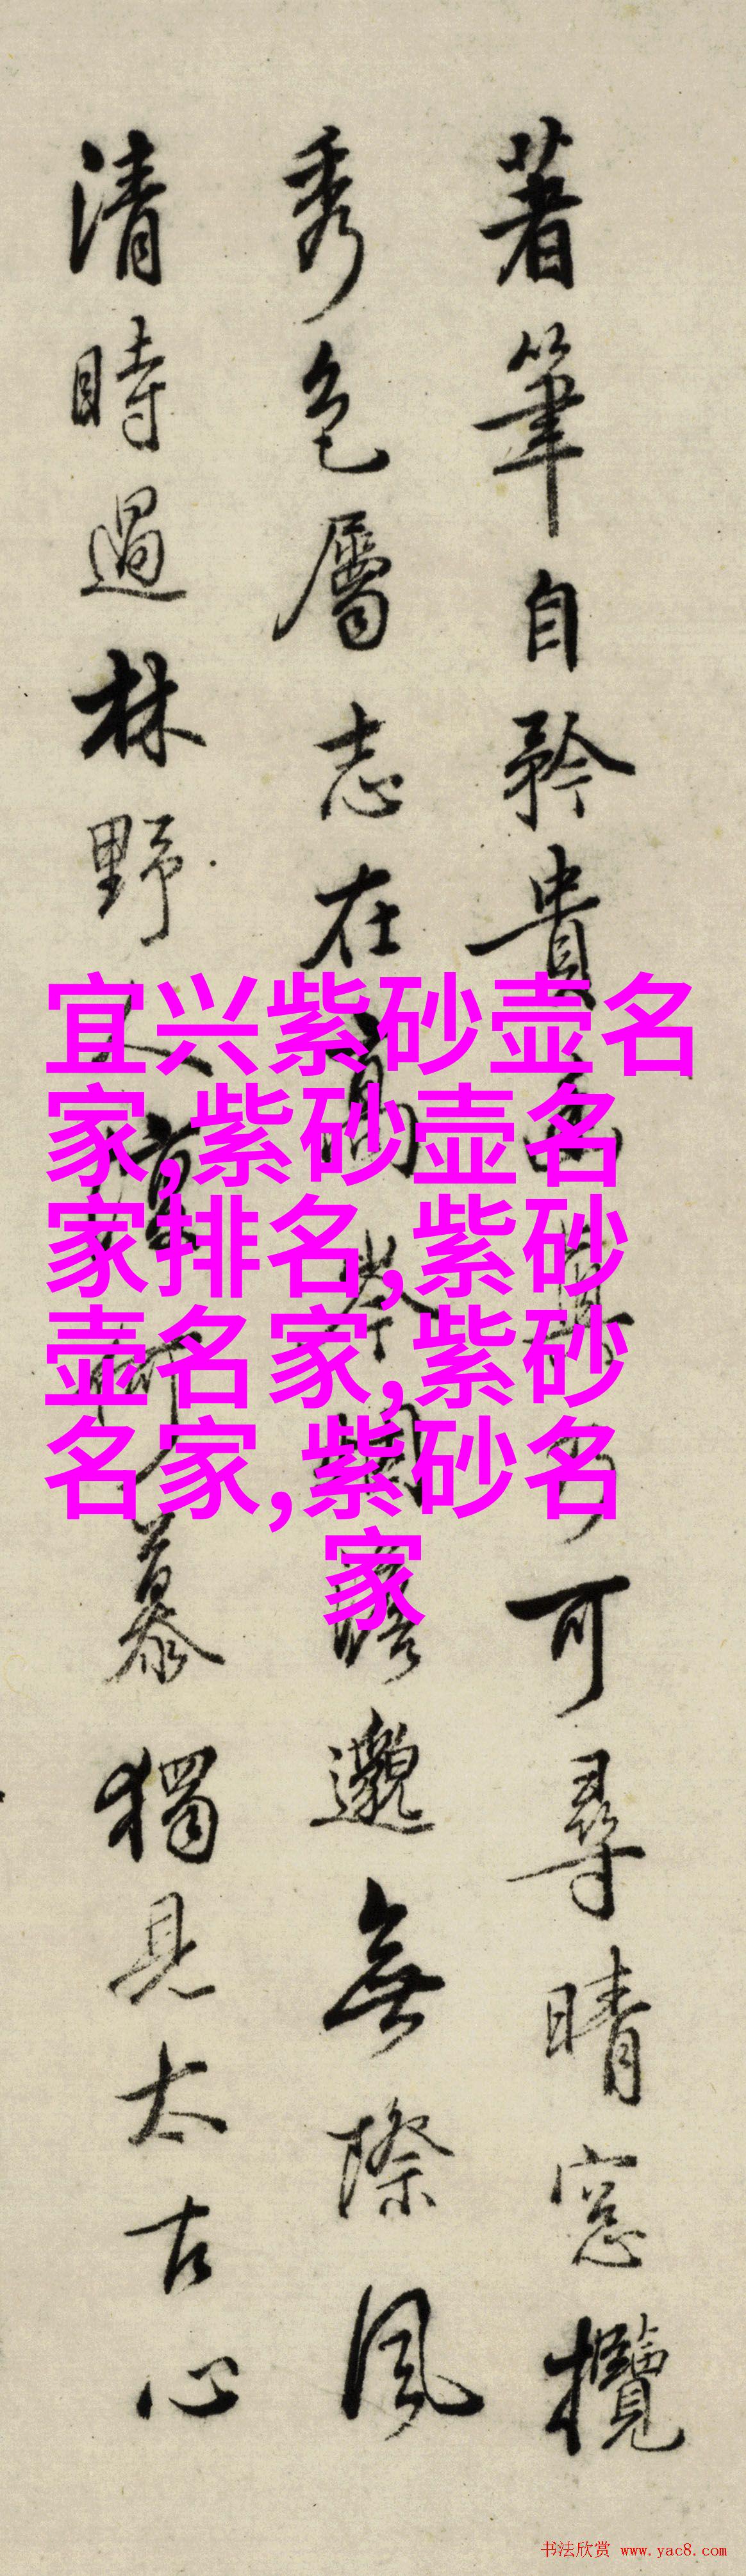 著筆自矜貴可尋晴窓攬
秀色屬志在高岑邈無際風
清時過林野人慕獨見太古心
宜兴紫砂壶名
家,紫砂壶名
家排名,紫砂
壶名家,紫砂
名家,紫砂名
家
书法欣赏 www.yac8.com